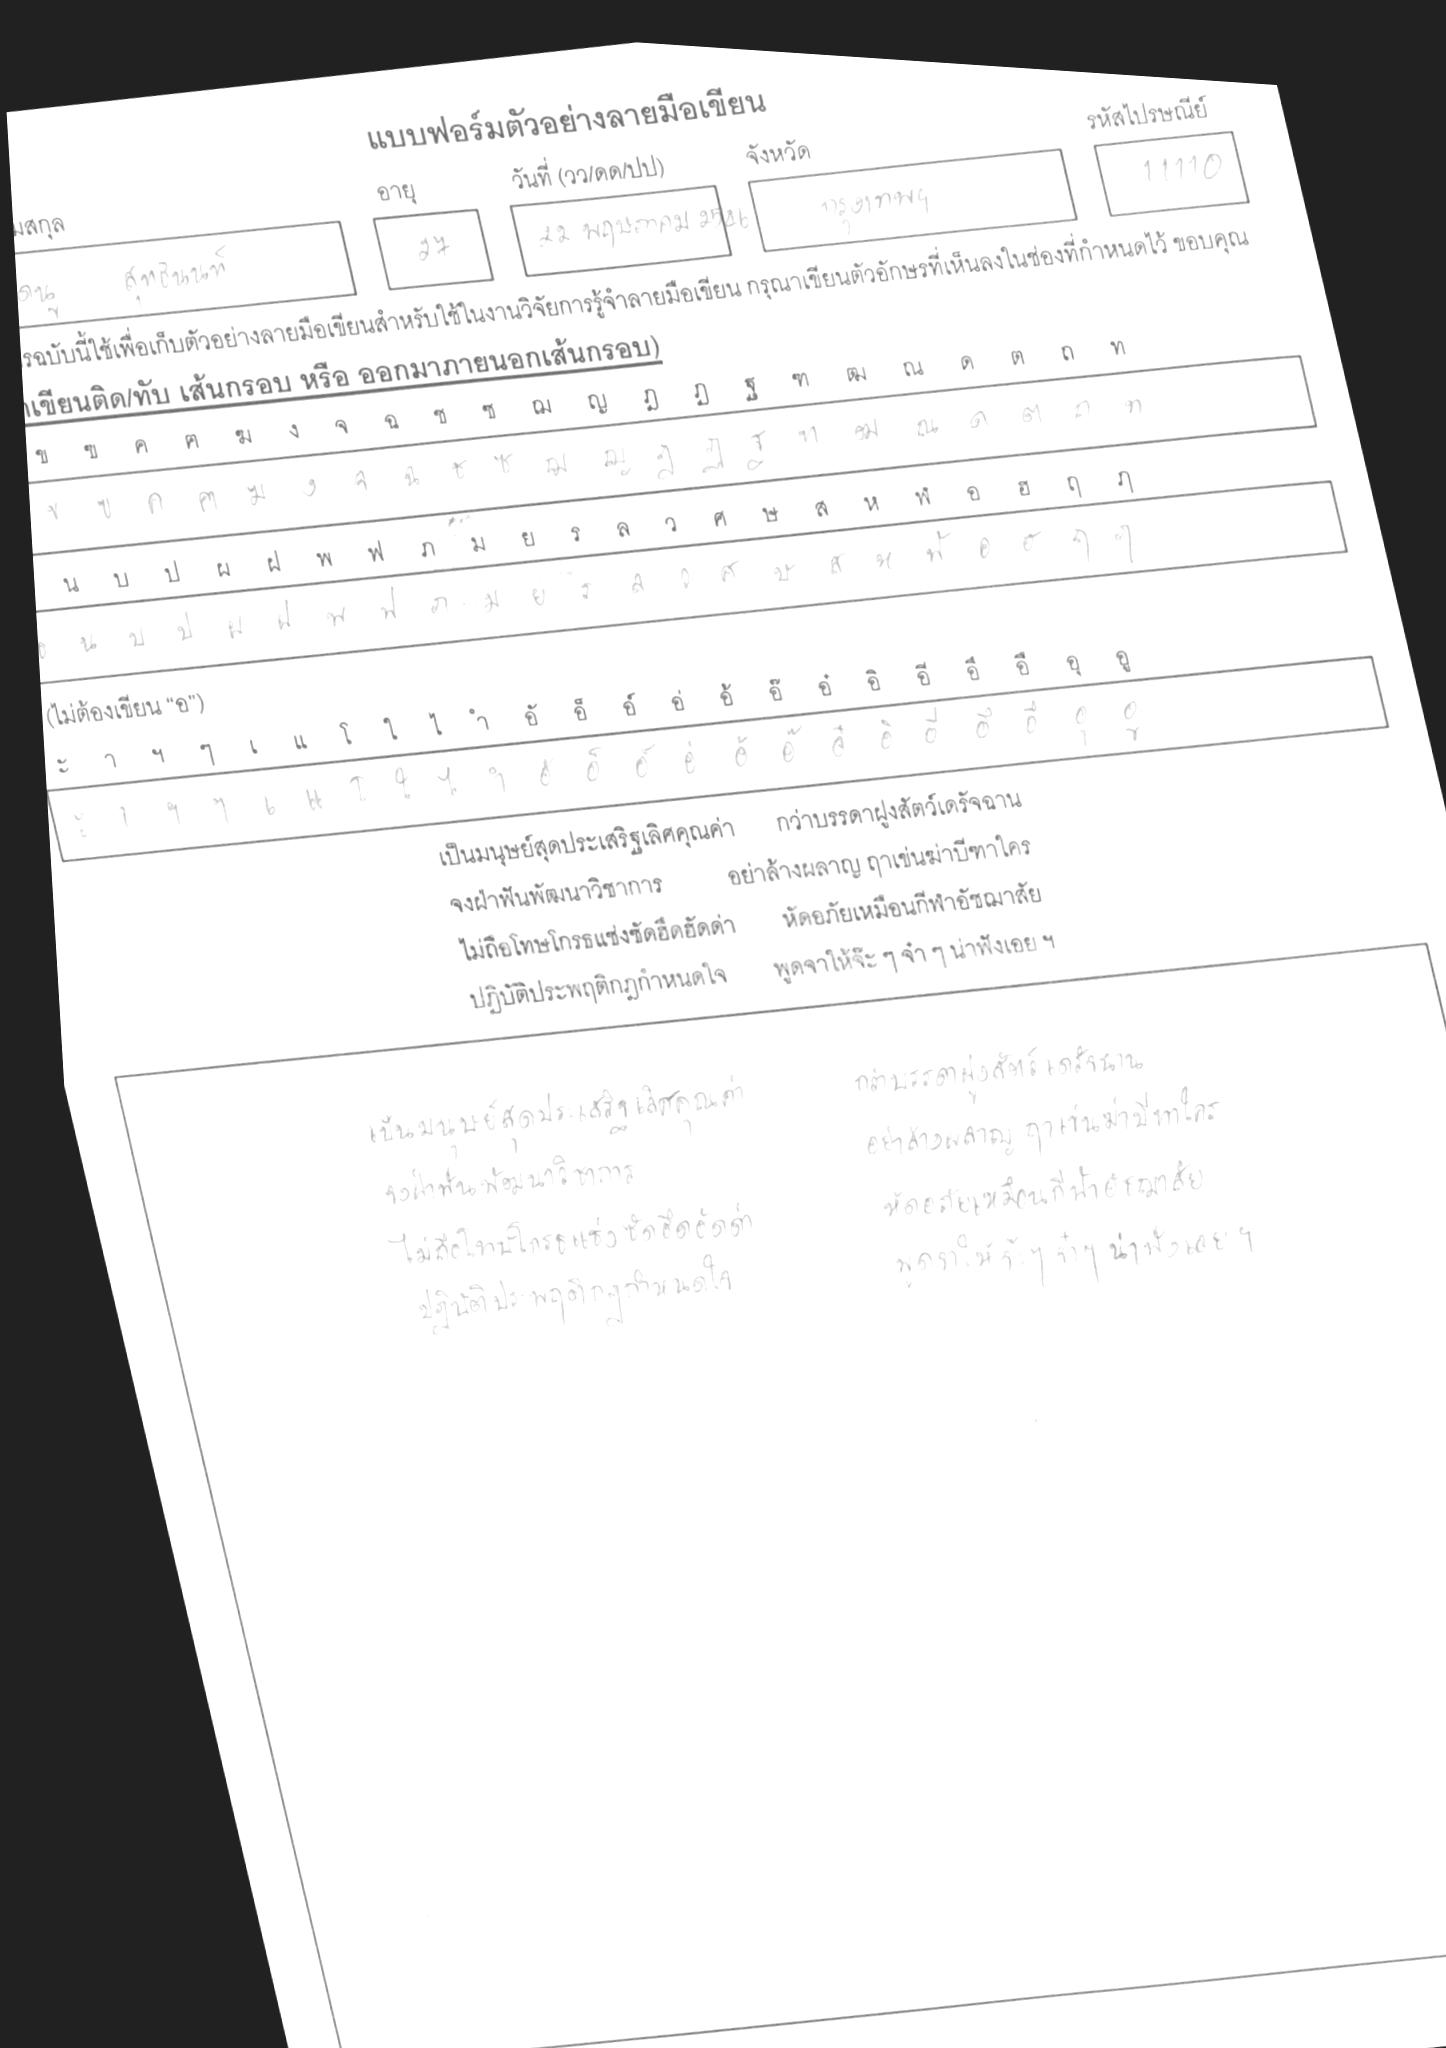 แบบฟอร์มตัวอย่างลายมือเขียน
มสกุล อายุ วันที่ (วว/ดด/ปป) จังหวัด รหัสไปรษณีย์
สุทธินนท์ 27 22 พฤษภาคม กรุงเทพฯ 11110
รฉบับนี้ใช้เพื่อเก็บตัวอย่างลายมือเขียนสำหรับใช้ในงานวิจัยการรู้จำลายมือเขียน กรุณาเขียนตัวอักษรที่เห็นลงในช่องที่กำหนดไว้ ขอบคุณ
เขียนติด/ทับ เส้นกรอบ หรือ ออกมาภายนอกเส้นกรอบ)
ข ฃ ค ฅ ฆ ง จ ฉ ช ซ ฌ ญ ฎ ฏ ฐ ฑ ฒ ณ ด ต ถ ท
ข ฃ ค ฅ ฆ ง จ ฉ ช ซ ฌ ญ ฎ ฏ ฐ ฑ ฒ ณ ด ต ถ ท
น บ ป ผ ฝ พ ฟ ภ ม ย ร ล ว ศ ษ ส ห ฬ อ ฮ ฤ ฦ
น บ ป ผ ฝ พ ฟ ภ ม ย ร ล ว ศ ษ ส ห ฬ อ ฮ ฤ ฦ
(ไม่ต้องเขียน “อ”)
ะ า ฯ ๆ เ แ โ ใ ไ ำ อั อ็ อ์ อ่ อ้ อ๊ อ๋ อิ อี อึ อื อุ อู
ะ า ฯ ๆ เ แ โ ใ ไ ำ อั อ็ อ์ อ่ อ้ อ๊ อ๋ อิ อี อึ อื อุ อู
เป็นมนุษย์สุดประเสริฐเลิศคุณค่า กว่าบรรดาฝูงสัตว์เดรัจฉาน
จงฝ่าฟันพัฒนาวิชาการ อย่าล้างผลาญ ฤาเข่นฆ่าบีฑาใคร
ไม่ถือโทษโกรธแช่งซัดฮึดฮัดด่า หัดอภัยเหมือนกีฬาอัชฌาสัย
ปฏิบัติประพฤติกฎกำหนดใจ พูดจาให้จ๊ะ ๆ จ๋า ๆ น่าฟังเอย ฯ
เป็นมนุษย์สุดประเสริฐเลิศคุณค่า กว่าบรรดาฝูงสัตว์เดรัจฉาน
จงฝ่าฟันพัฒนาวิชาการ อย่าล้างผลาญ ฤาเข่นฆ่าบีฑาใคร
ไม่ถือโทษโกรธแช่งซัดฮึดฮัดด่า หัดอภัยเหมือนกีฬาอัชฌาสัย
ปฏิบัติประพฤติกฎกำหนดใจ พูดจาให้จ๊ะๆ จ๋าๆ น่าฟังเอย ฯ